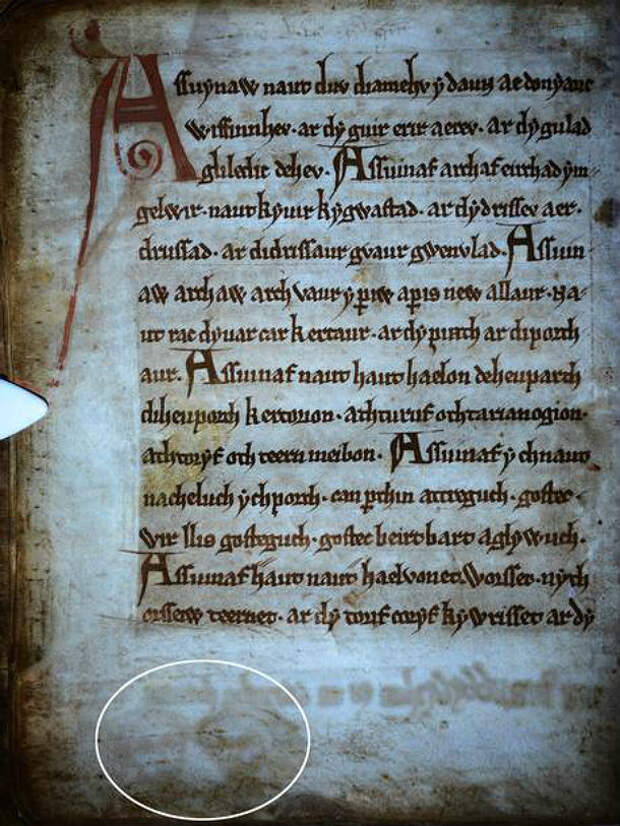 Assuynaw naut duv diamehv y daun ae donyauc
wiffinnhev. ar dy guir erir aerev. ar dy gulad
guledic dehev. Assuinaf archaf eirchad ym-
gelwir. naut kyuir kygwastad. ar dy drissev aer.
drussad. ar didrissaur gvaur gwenvlad. Assuin
aw archaw arch vaur y piw apis new allaur. Na-
ut rac dyuar car kertaur. ar dy pirth ar diporth
aur. Assuinaf naut haut haelon deheuparth
diheuporth kertorion. ath turuf oth tarianogion.
ath toryf oth teern meibon. Assuinaf y ch naut
nacheluch ych porth. can pthin attreguch. gostec-
wir llis gosteguch. gostec beirt bart aglywuch.
Assuinaf haut naut haelvonet. Worsset. nyth
orssetiw teernet. ar dy toruf toryf ky wrisset ar dy